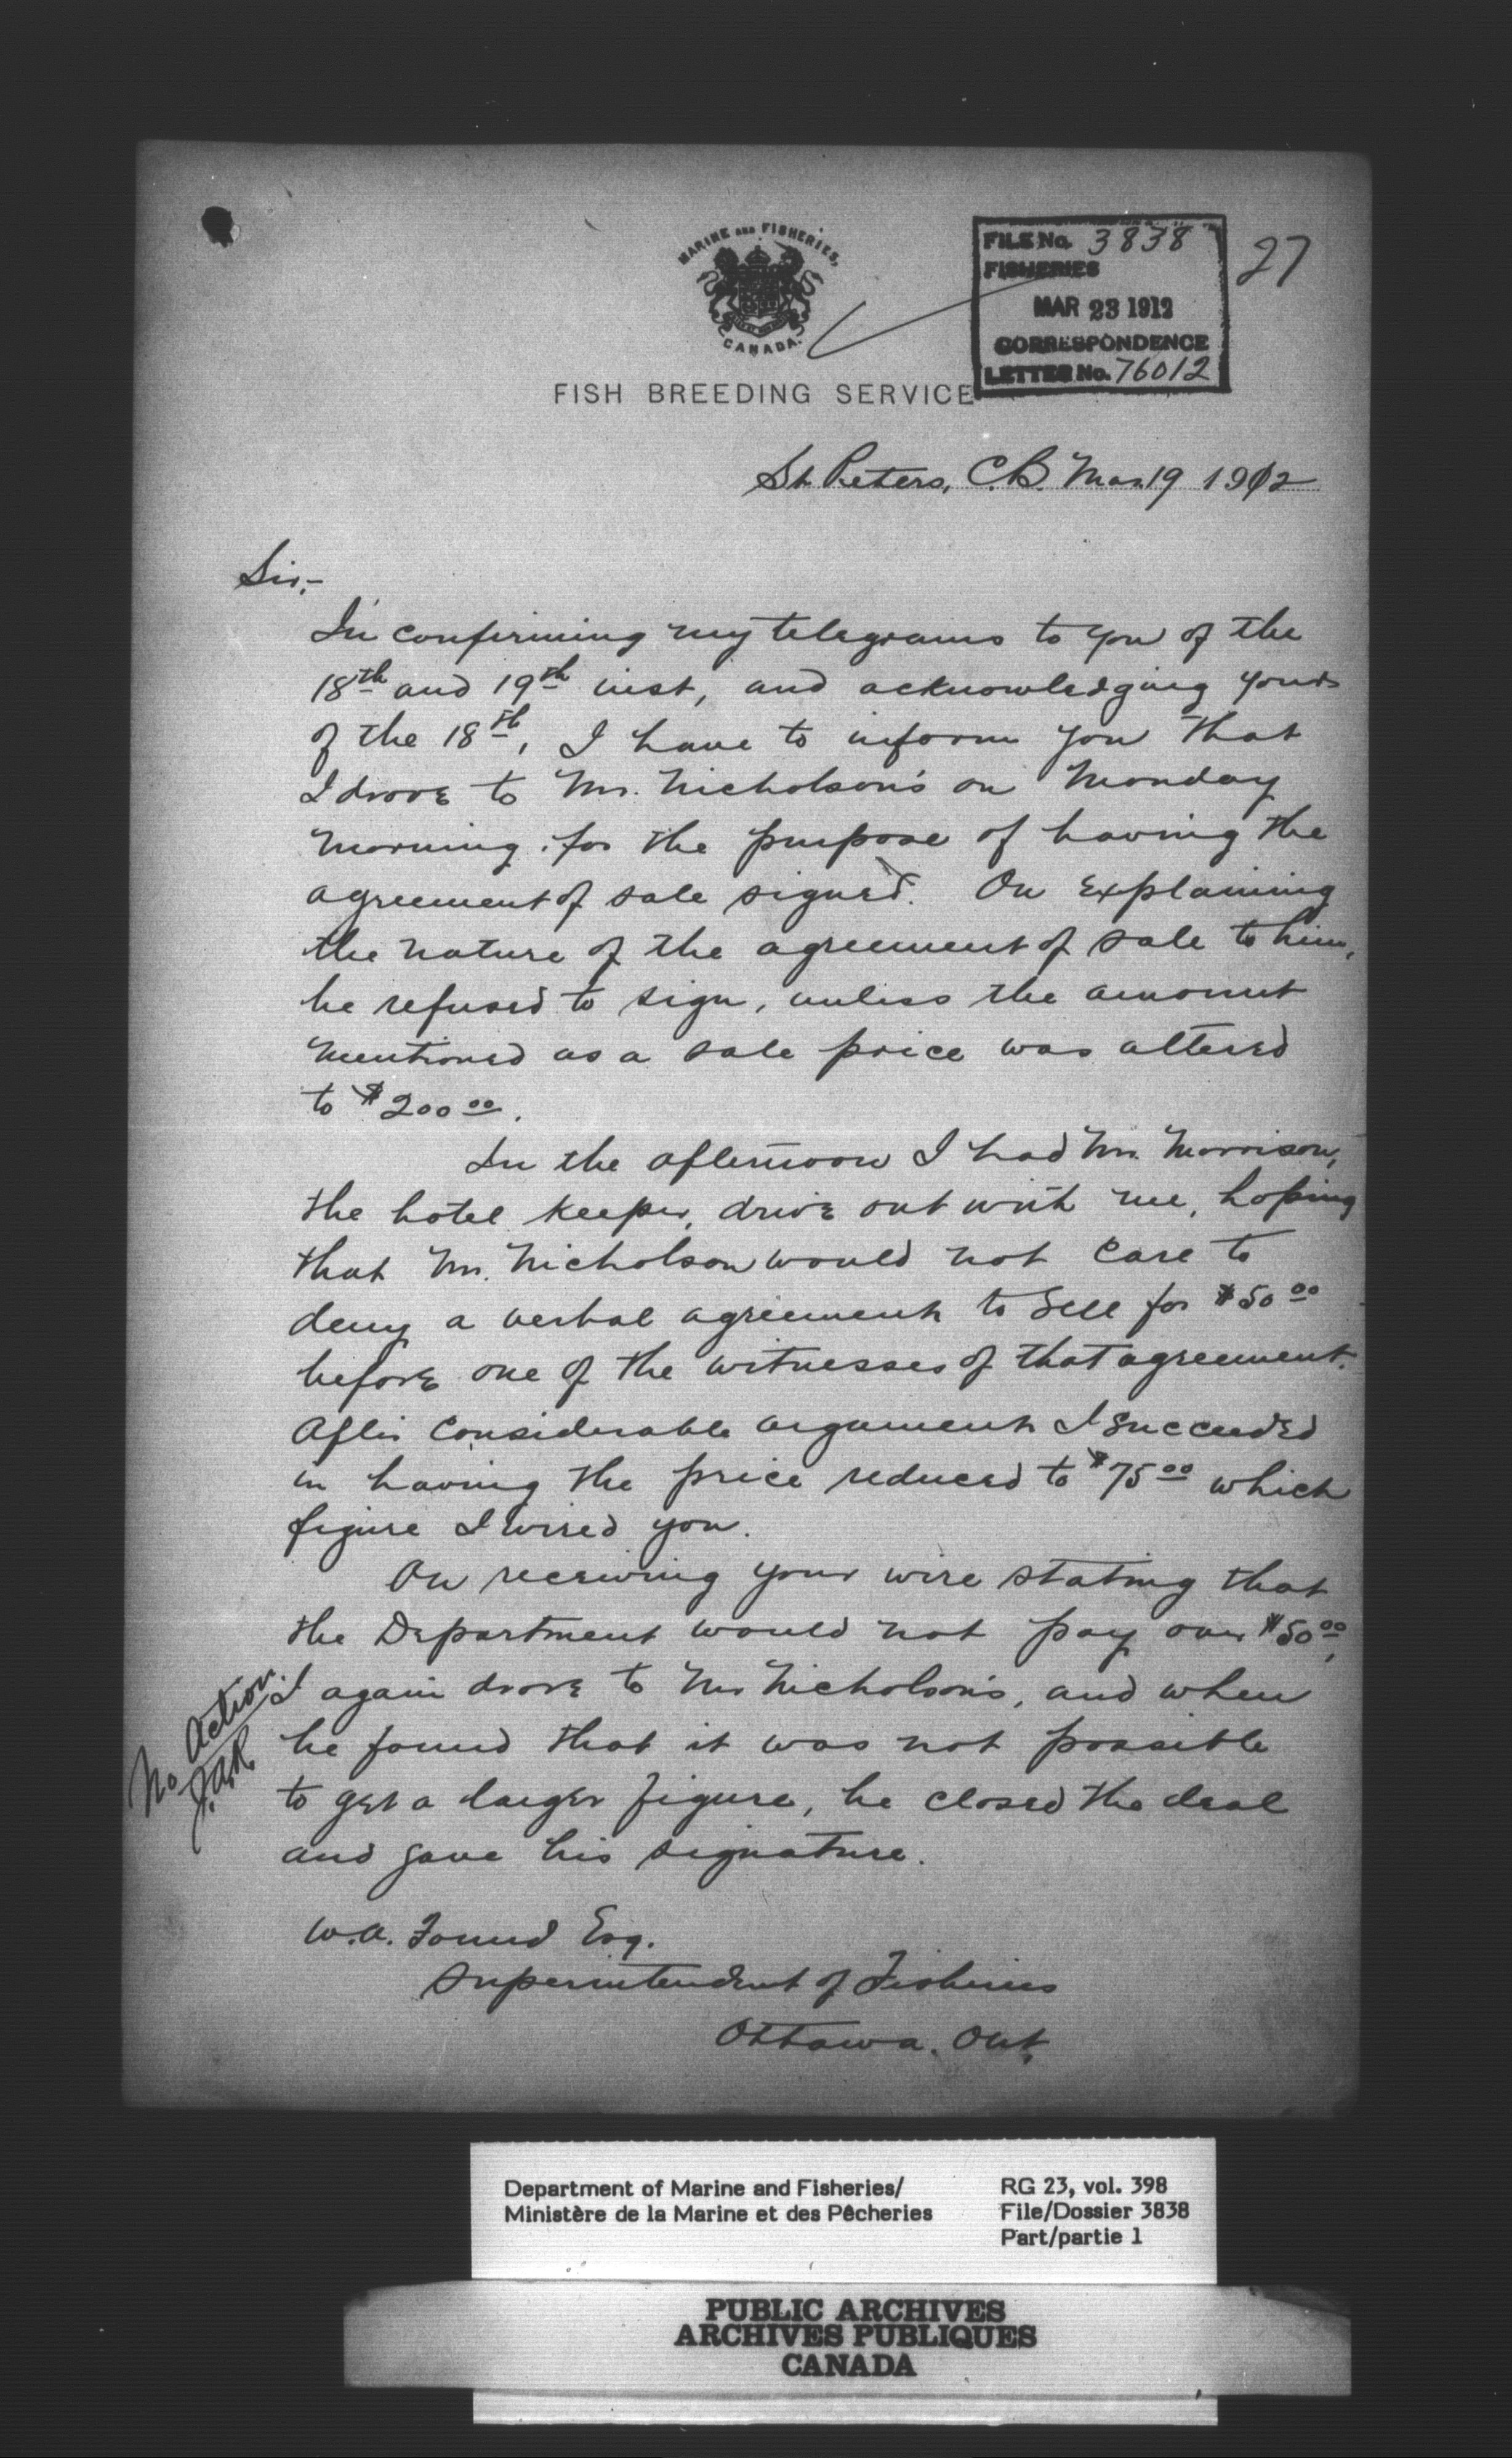 MARINE AND FISHERIES,
CANADA.
FISH BREEDING SERVICE
FILE No. 3838
FISHERIES
MAR 23 1912
CORRESPONDENCE
LETTER No. 76012
27
St. Peters, C.B. Mar. 19 1912
Sir,-
In confirming my telegrams to you of the
18th and 19th inst, and acknowledging yours
of the 18th, I have to inform you that
I drove to Mr. Nicholson's on Monday
morning for the purpose of having the
agreement of sale signed. On explaining
the nature of the agreement of sale to him,
he refused to sign, unless the amount
mentioned as a sale price was altered
to $200 00.
In the afternoon I had Mr. Morrison,
the hotel keeper, drive out with me, hoping
that Mr. Nicholson would not care to
deny a verbal agreement to sell for $50 00
before one of the witnesses of that agreement.
After considerable argument I succeeded
in having the price reduced to $75 00 which
figure I wired you.
On receiving your wire stating that
the Department would not pay over $50 00,
I again drove to Mr Nicholson's, and when
he found that it was not possible
to get a larger figure, he closed the deal
and gave his signature.
No Action.
J.A.R.
W.A. Found Esq.
Superintendent of Fisheries
Ottawa. Ont.
Department of Marine and Fisheries/
Ministère de la Marine et des Pêcheries
RG 23, vol. 398
File/Dossier 3838
Part/partie 1
PUBLIC ARCHIVES
ARCHIVES PUBLIQUES
CANADA